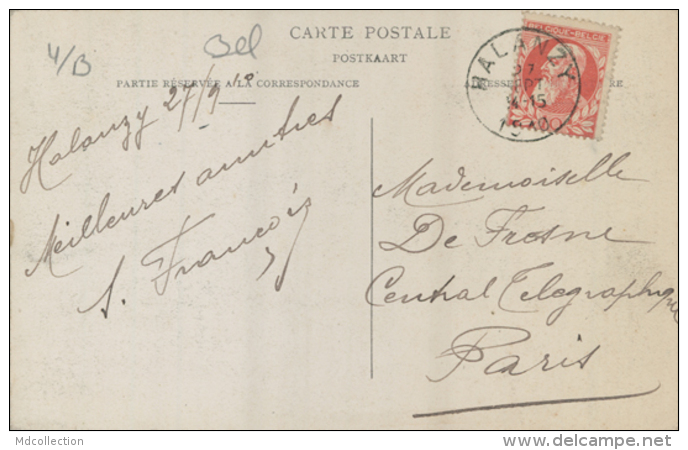 CARTE POSTALE
POSTKAART
PARTIE RÉSERVÉE A LA CORRESPONDANCE
BELGIQUE·BELGIE
HALANZY
27
SEPT
14-15
1910
4/B
Bel
Halanzy 27/9 10
Meilleures amitiés
S. François
Mademoiselle
De Fresne
Central Telegraphique
Paris
Mdcollection
www.delcampe.net